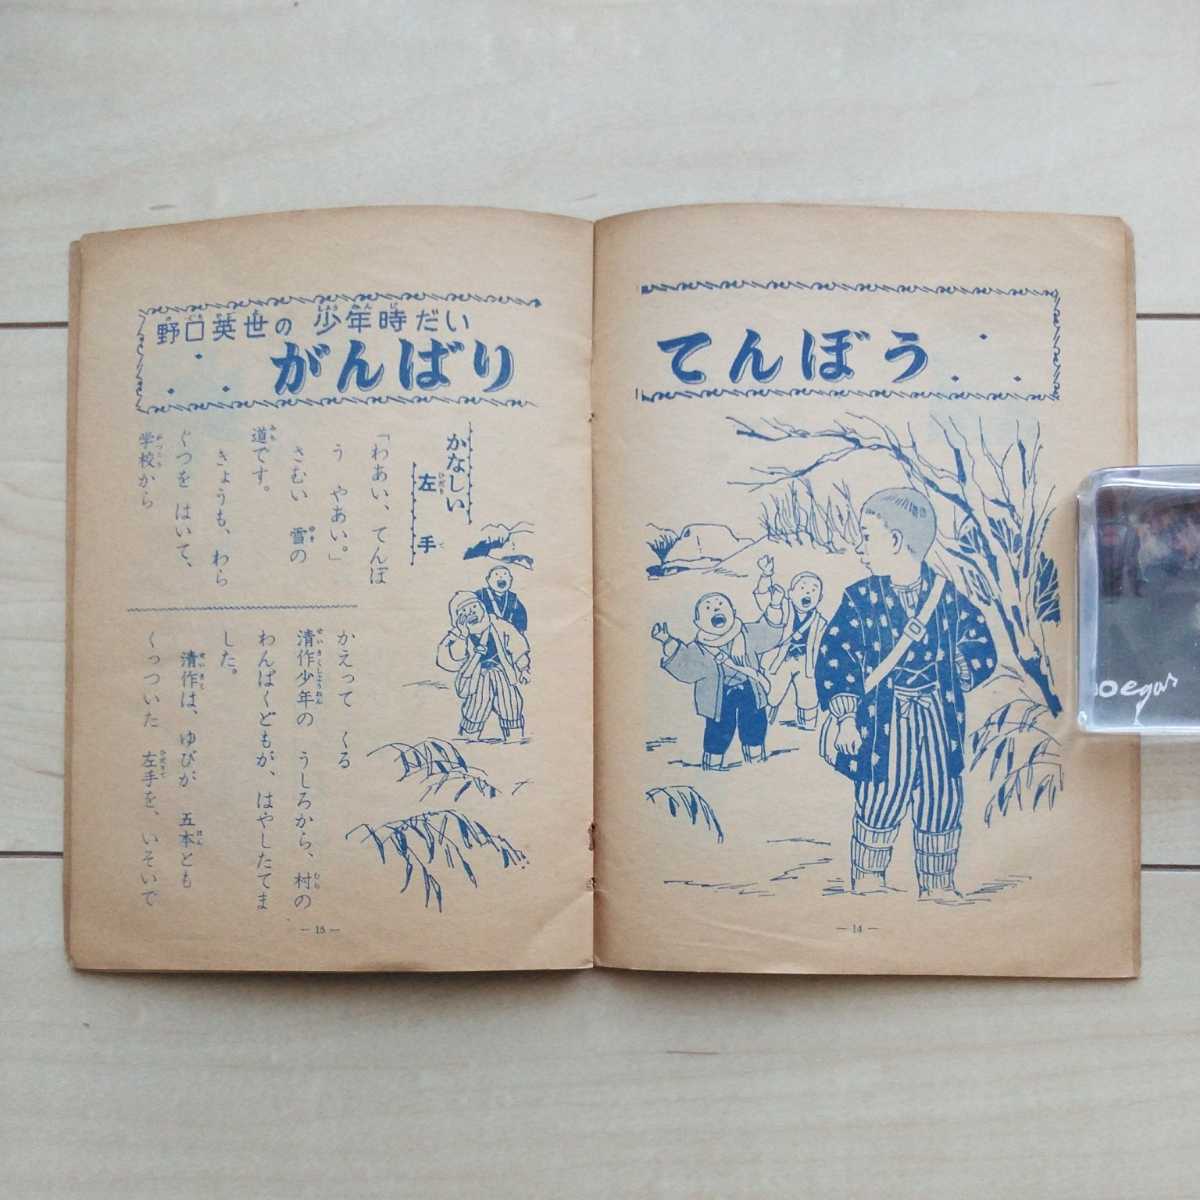 野口英世の 少年時だい
がんばり てんぼう
かなしい
左手
「わあい、てんぼ
う やあい。」
さむい 雪の
道です。
きょうも、わら
ぐつを はいて、
学校から
かえって くる
清作少年の うしろから、村の
わんぱくどもが、はやしたてま
した。
清作は、ゆびが 五本とも
くっついた 左手を、いそいで
— 15 —
— 14 —